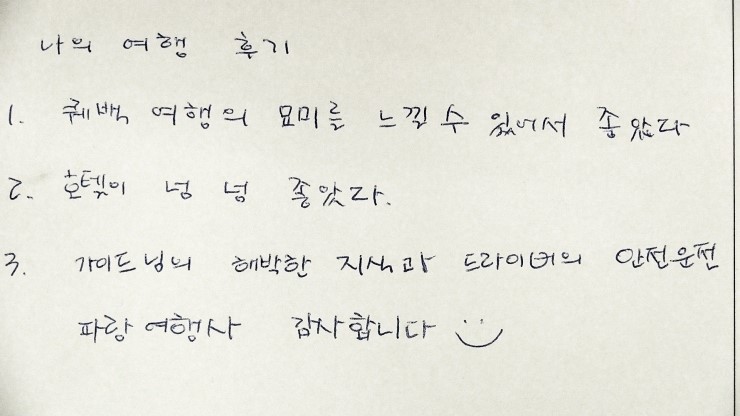 나의 여행 후기
1. 퀘백 여행의 묘미를 느낄 수 있어서 좋았다
2. 호텔이 넘 넘 좋았다.
3. 가이드님의 해박한 지식과 드라이버의 안전운전
파랑여행사 감사합니다